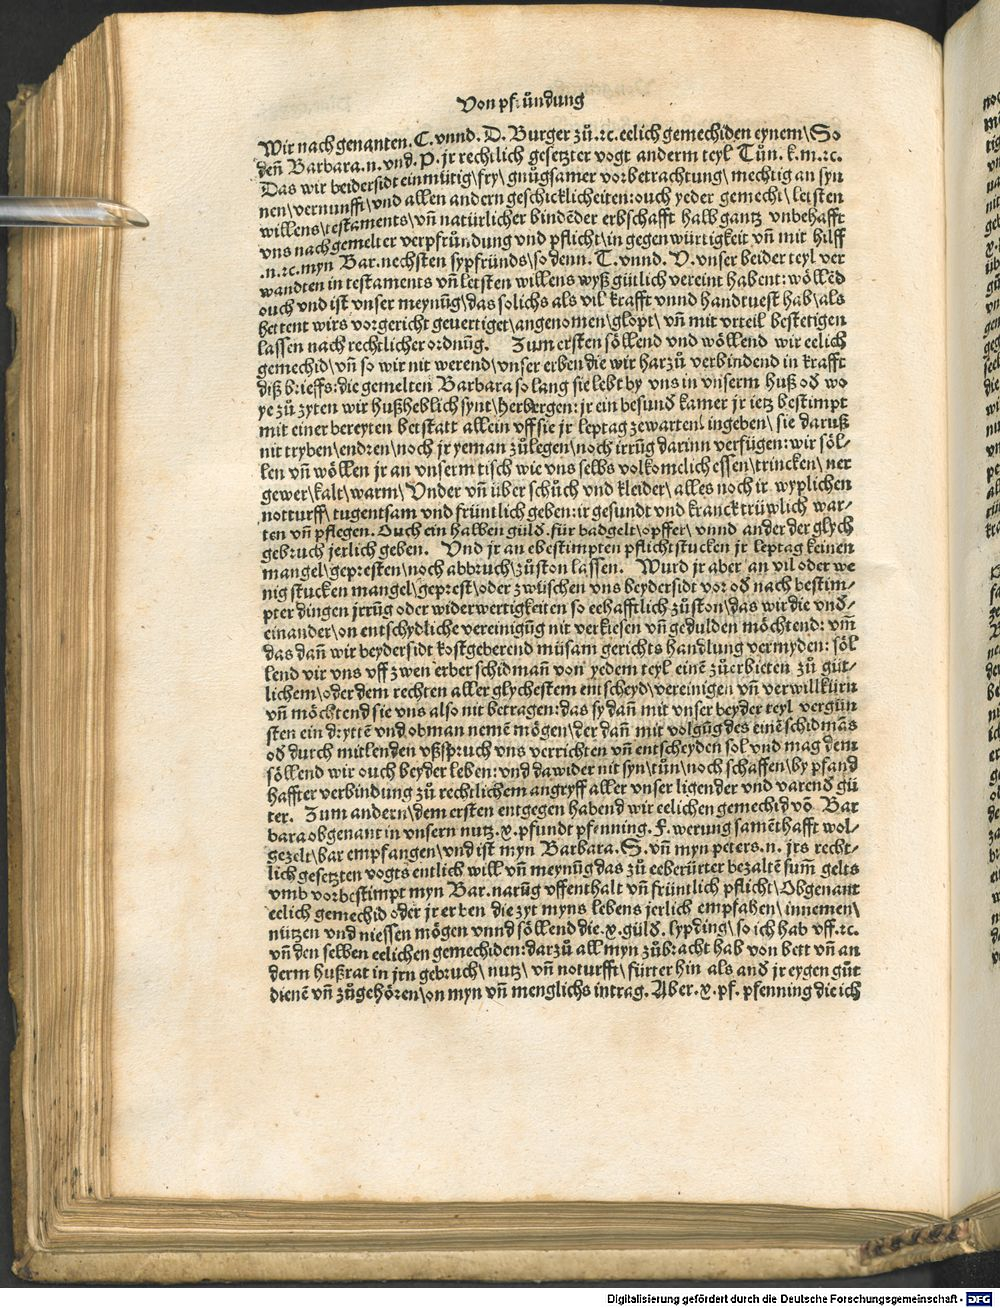 Von pfründung
Wir nach genanten. C. vnnd. D. Burger zů .ꝛc. eelich gemechiden eynem\ So
deñ Barbara .n. vnd. P. jr rechtlich gesetzter vogt anderm teyl Tůn. k. m. ꝛc.
Das wir beidersidt einmütig\ fry\ gnůgsamer vorbetrachtung\ mechtig an syn
nen\ vernunfft\ vnd allen andern geschicklicheiten: ouch yeder gemecht\ letsten
willens\ testaments\ vñ natürlicher bindēder erbschafft halb gantz vnbehafft
vns nachgemelter verpfründung vnd pflicht\ in gegenwürtigkeit vñ mit hilff
.n. ꝛc. myn Bar. nechsten sypfründs\ so denn. T. vnnd. V. vnser beider teyl ver
wandten in testaments vñ letsten willens wyß gütlich vereint habent: wöllēd
ouch vnd ist vnser meynūg\ das solichs als vil krafft vnnd handtuest hab\ als
hettent wirs vor gericht geuertiget\ angenomen\ glopt\ vñ mit vrteil bestetigen
lassen nach rechtlicher ordnūg. Zum ersten söllend vnd wöllend wir eelich
gemechid\ vñ so wir nit werend\ vnser erben die wir harzů verbindend in krafft
diß brieffs: die gemelten Barbara so lang sie lebt by vns in vnserm huß od wo
ye zů zyten wir hußheblich synt\ herbergen: jr ein besund kamer jr ietz bestimpt
mit einer bereyten betstatt allein vff sie jr leptag zewarten\ ingeben\ sie daruß
nit tryben\ endren\ noch jr yeman zůlegen\ noch irrūg darinn verfügen: wir söl-
len vñ wöllen jr an vnserm tisch wie vns selbs volkomelich essen\ trincken\ ner
gewer\ kalt\ warm\ Vnder vñ über schůch vnd kleider\ alles noch ir wyplichen
notturff\ tugentsam vnd früntlich geben: ir gesundt vnd kranck trüwlich war-
ten vñ pflegen. Ouch ein halben güld. für badgelt\ opffer\ vnnd ander der glych
gebruch jerlich geben. Vnd jr an ebestimpten pflichtstucken jr leptag keinen
mangel\ gepresten\ noch abbruch\ zůston lassen. Wurd jr aber an vil oder we
nig stucken mangel\ geprest\ oder zwüschen vns beydersidt vor od nach bestim-
pter dingen jrrūg oder widerwertigkeiten so eehafftlich zůston\ das wir die vnd-
einander\ on entschydliche vereinigūg nit verkiesen vñ gedulden möchtend: vm̄
das dañ wir beydersidt kostgeberend müsam gerichts handlung vermyden: söl
lend vir vns vff zwen erber schidmañ von yedem teyl einē zůerbieten zů güt-
lichem\ oder dem rechten aller glychestem entscheyd\ vereinigen vñ verwillkürn
vñ möchtend sie vns also nit betragen: das sy dañ mit vnser beyder teyl vergün
sten ein drytte vnd obman nemē mögen\ der dañ mit volgūg des einē schidmās
od durch mitlenden vßspruch vns verrichten vñ entscheyden sol vnd mag dem
söllend wir ouch beyder leben: vnd dawider nit syn\ tůn\ noch schaffen\ by pfand
haffter verbindung zů rechtlichem angryff aller vnser ligender vnd varend gü
ter. Zum andern\ dem ersten entgegen habend wir eelichen gemechid vō Bar
bara obgenant in vnsern nutz .x. pfundt pfenning. F. werung samēthafft wol-
gezelt\ bar empfangen\ vnd ist myn Barbara. S. vñ myn peters. n. jrs recht-
lich gesetzten vogts entlich will vñ meynūg das zů eeberürter bezaltē sum̄ gelts
vmb vorbestimpt myn Bar. narūg vffenthalt vñ früntlich pflicht\ Obgenant
eelich gemechid oder jr erben die zyt myns lebens jerlich empfahen\ innemen\
nützen vnd niessen mögen vnnd söllend die .x. güld. lypding\ so ich hab vff .ꝛc.
vñ den selben eelichen gemechiden: darzů all myn zůbracht hab von bett vñ an
derm hußrat in jrn gebruch\ nutz\ vñ noturfft\ fürter hin als and jr eygen gůt
dienē vñ zůgehören\ on myn vñ menglichs intrag. Aber .x. pf. pfenning die ich
Digitalisierung gefördert durch die Deutsche Forschungsgemeinschaft - DFG